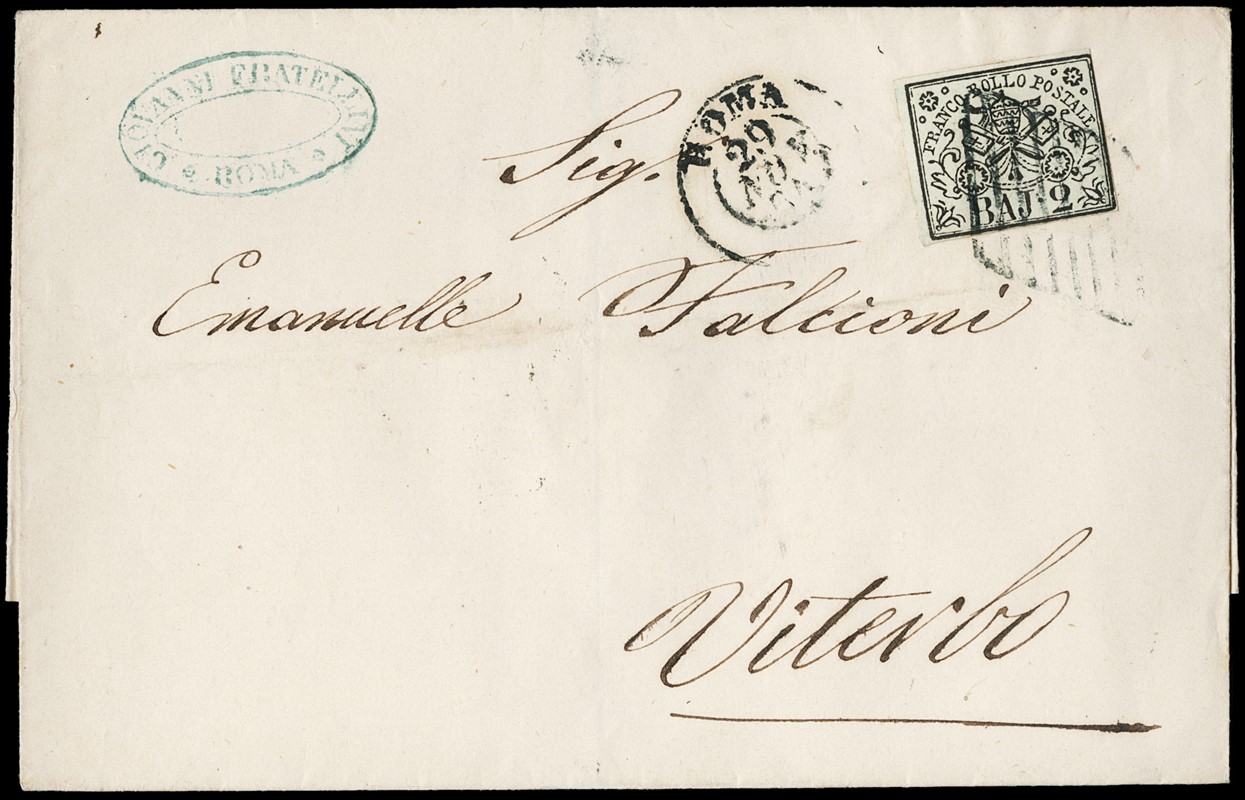 GIOVANNI FRATELLINI
ROMA
ROMA
29
NO
FRANCO BOLLO POSTALE
BAJ 2
Sig.
Emanuelle Falcioni
Viterbo